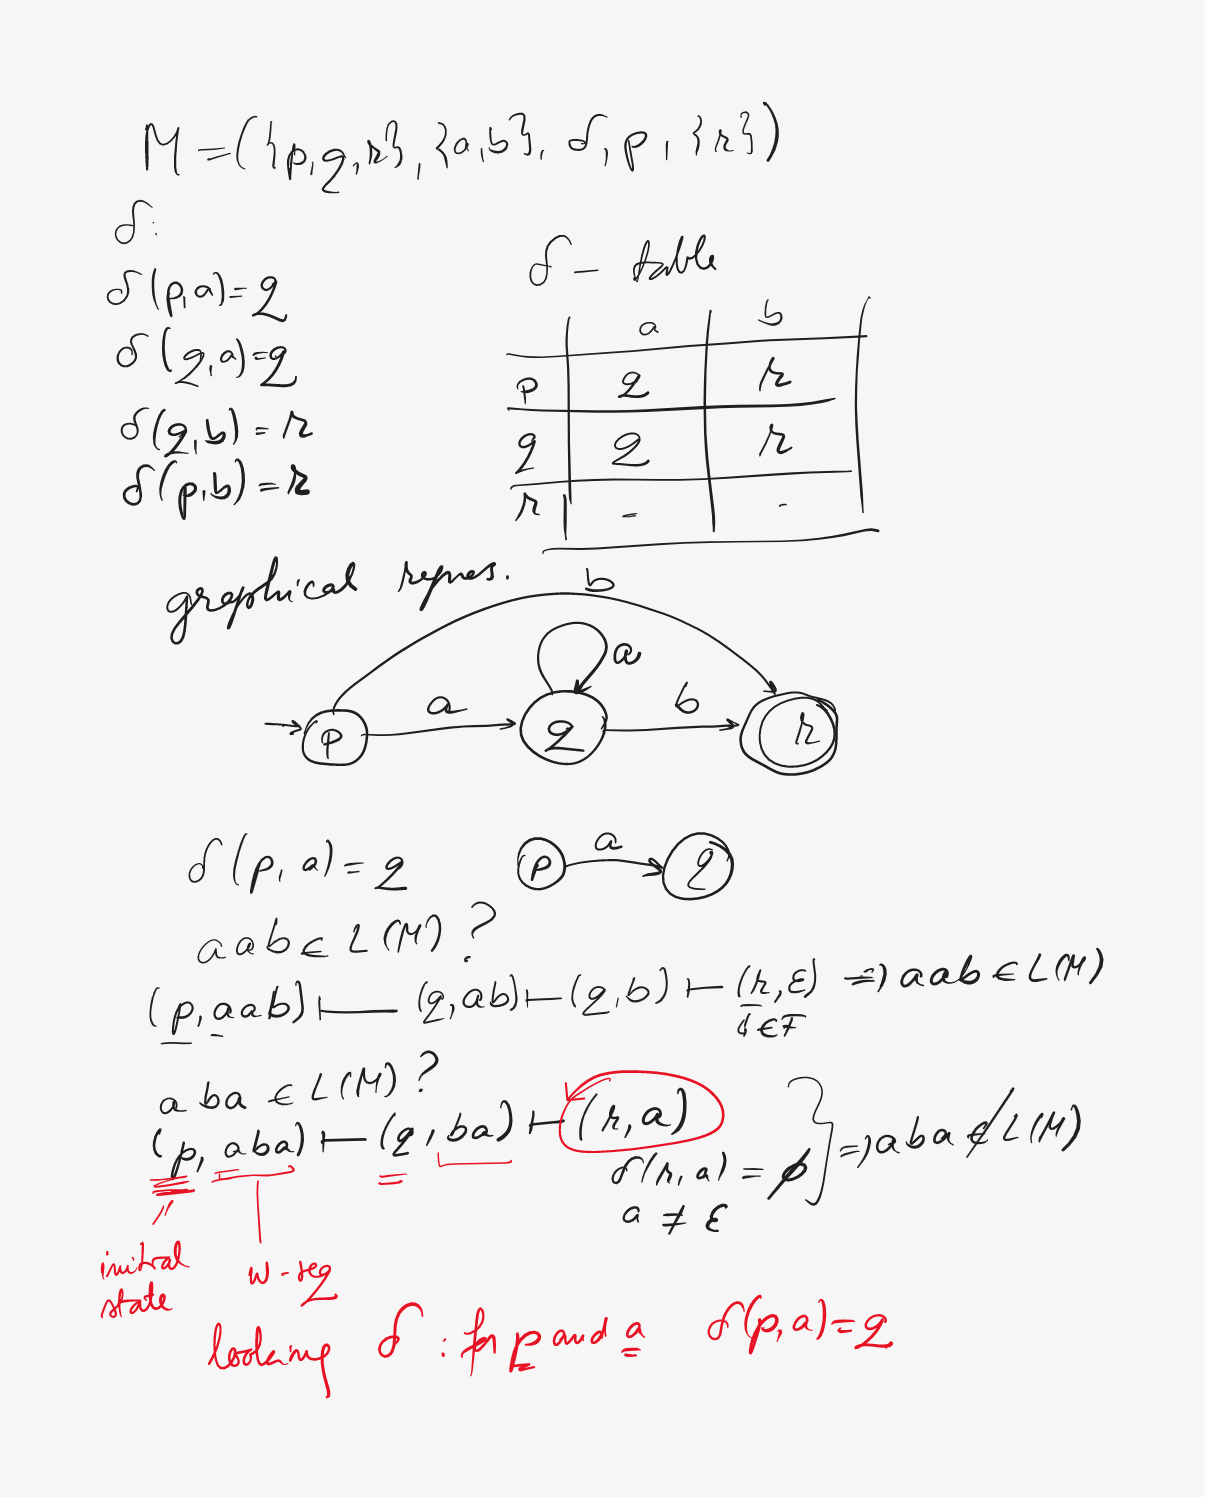 M = ({p,q,r}, {a,b}, δ, p, {r})
δ:
δ(p,a)=q
δ(q,a)=q
δ(q,b)=r
δ(p,b)=r
δ - table
a b
p q r
q q r
r - -
graphical repres.
b
a
a b
p q r
δ(p,a)=q p a q
aab ∈ L(M)?
(p,aab) ⊢ (q,ab) ⊢ (q,b) ⊢ (r,ε) ⇒ aab ∈ L(M)
∈F
aba ∈ L(M)?
(p,aba) ⊢ (q,ba) ⊢ (r,a) } ⇒ aba ∉ L(M)
δ(r,a) = ϕ
a ≠ ε
initial
state
w-seq
looking δ: for p and a δ(p,a)=q